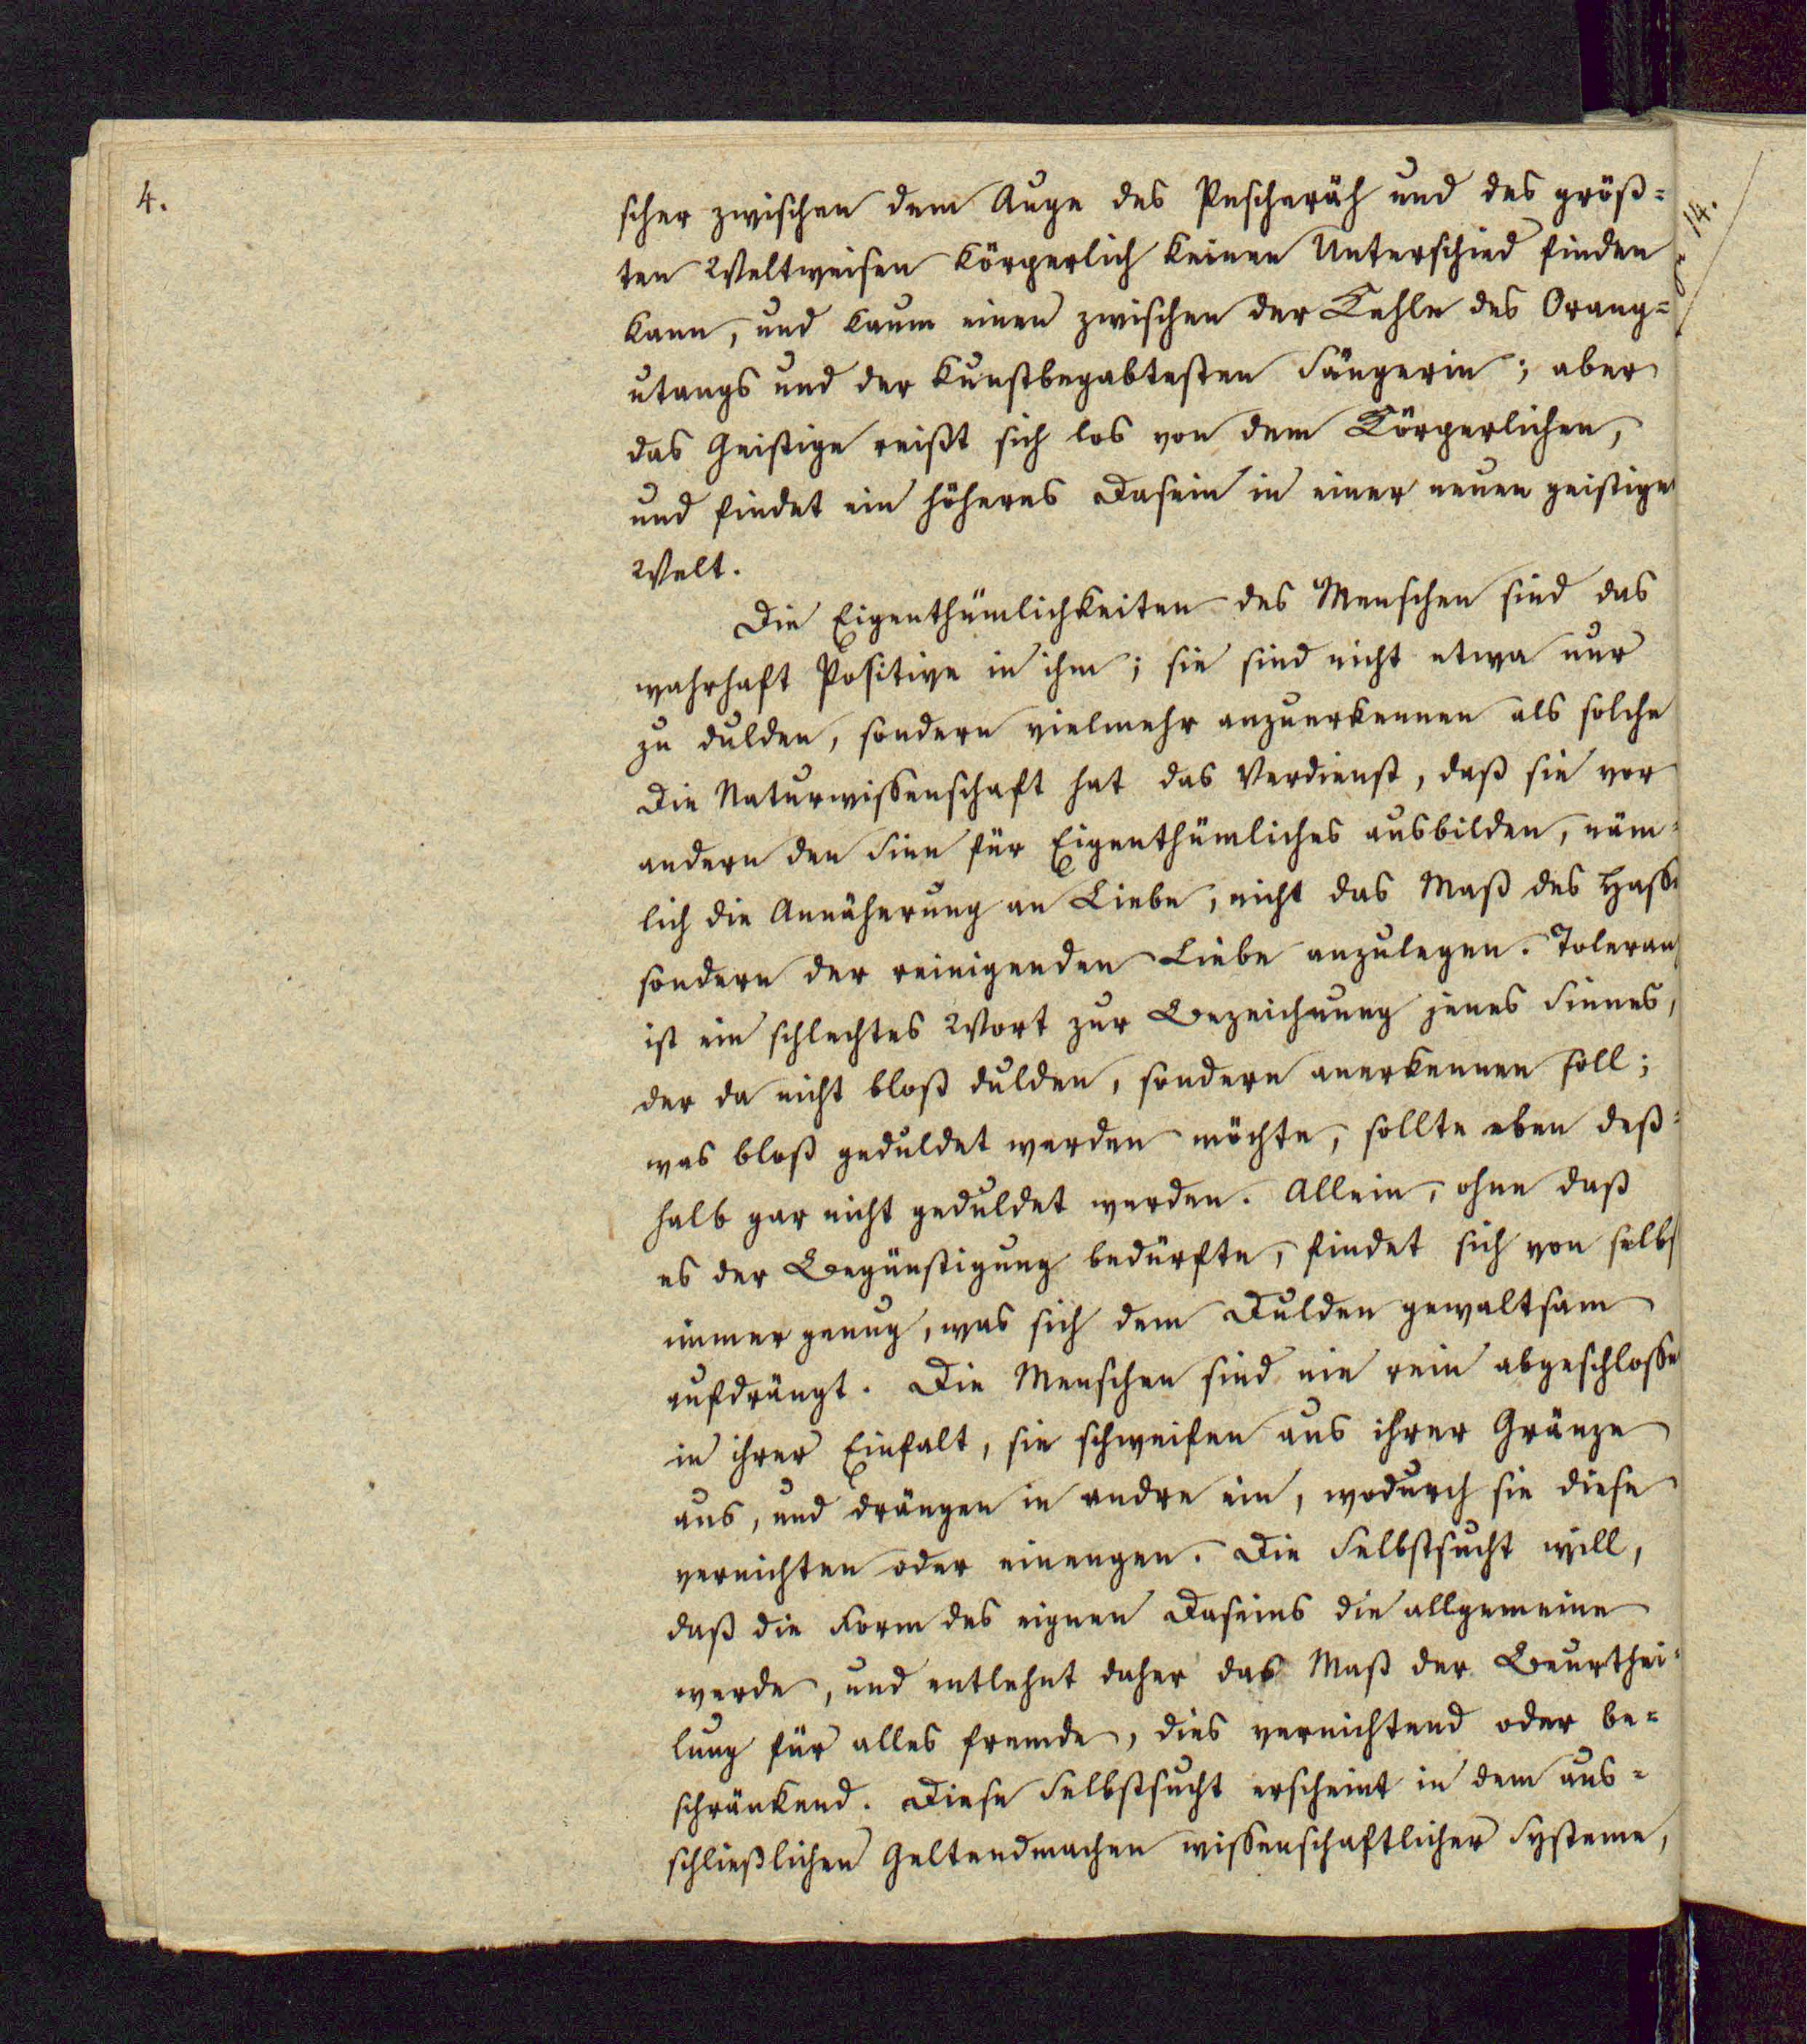 4.
scher zwischen dem Auge des Pescheräh und des größ=
ten Weltweisen körperlich keinen Unterschied finden
kann, und kaum einen zwischen der Kehle des Orang=
utangs und der kunstbegabtesten Sängerin; aber
das Geistige reißt sich los von dem Körperlichen,
und findet ein höheres Dasein in einer neuen geistigen
Welt.
Die Eigenthümlichkeiten des Menschen sind das
wahrhaft Positive in ihm; sie sind nicht etwa nur
zu dulden, sondern vielmehr anzuerkennen als solche
Die Naturwissenschaft hat das Verdienst, daß sie vor
andern den Sinn für Eigenthümliches ausbilden, näm=
lich die Annäherung an Liebe, nicht das Maß des Hasse
sondern der reinigenden Liebe anzulegen. Toleranz
ist ein schlechtes Wort zur Bezeichnung jenes Sinnes,
der da nicht bloß dulden, sondern anerkennen soll;
was bloß geduldet werden möchte, sollte eben deß=
halb gar nicht geduldet werden. Allein, ohne daß
es der Begünstigung bedürfte, findet sich von selbs
immer genug, was sich dem Dulden gewaltsam
aufdrängt. Die Menschen sind nie rein abgeschlosse
in ihrer Einfalt, sie schweifen aus ihrer Gränze
aus, und drängen in andre ein, wodurch sie diese
vernichten oder einengen. Die Selbstsucht will,
daß die Form des eignen Daseins die allgemeine
werde, und entlehnt daher das Maß der Beurthei=
lung für alles fremde, dies vernichtend oder be=
schränkend. Diese Selbstsucht erscheint in dem aus=
schließlichen Geltendmachen wissenschaftlicher Systeme,
14.